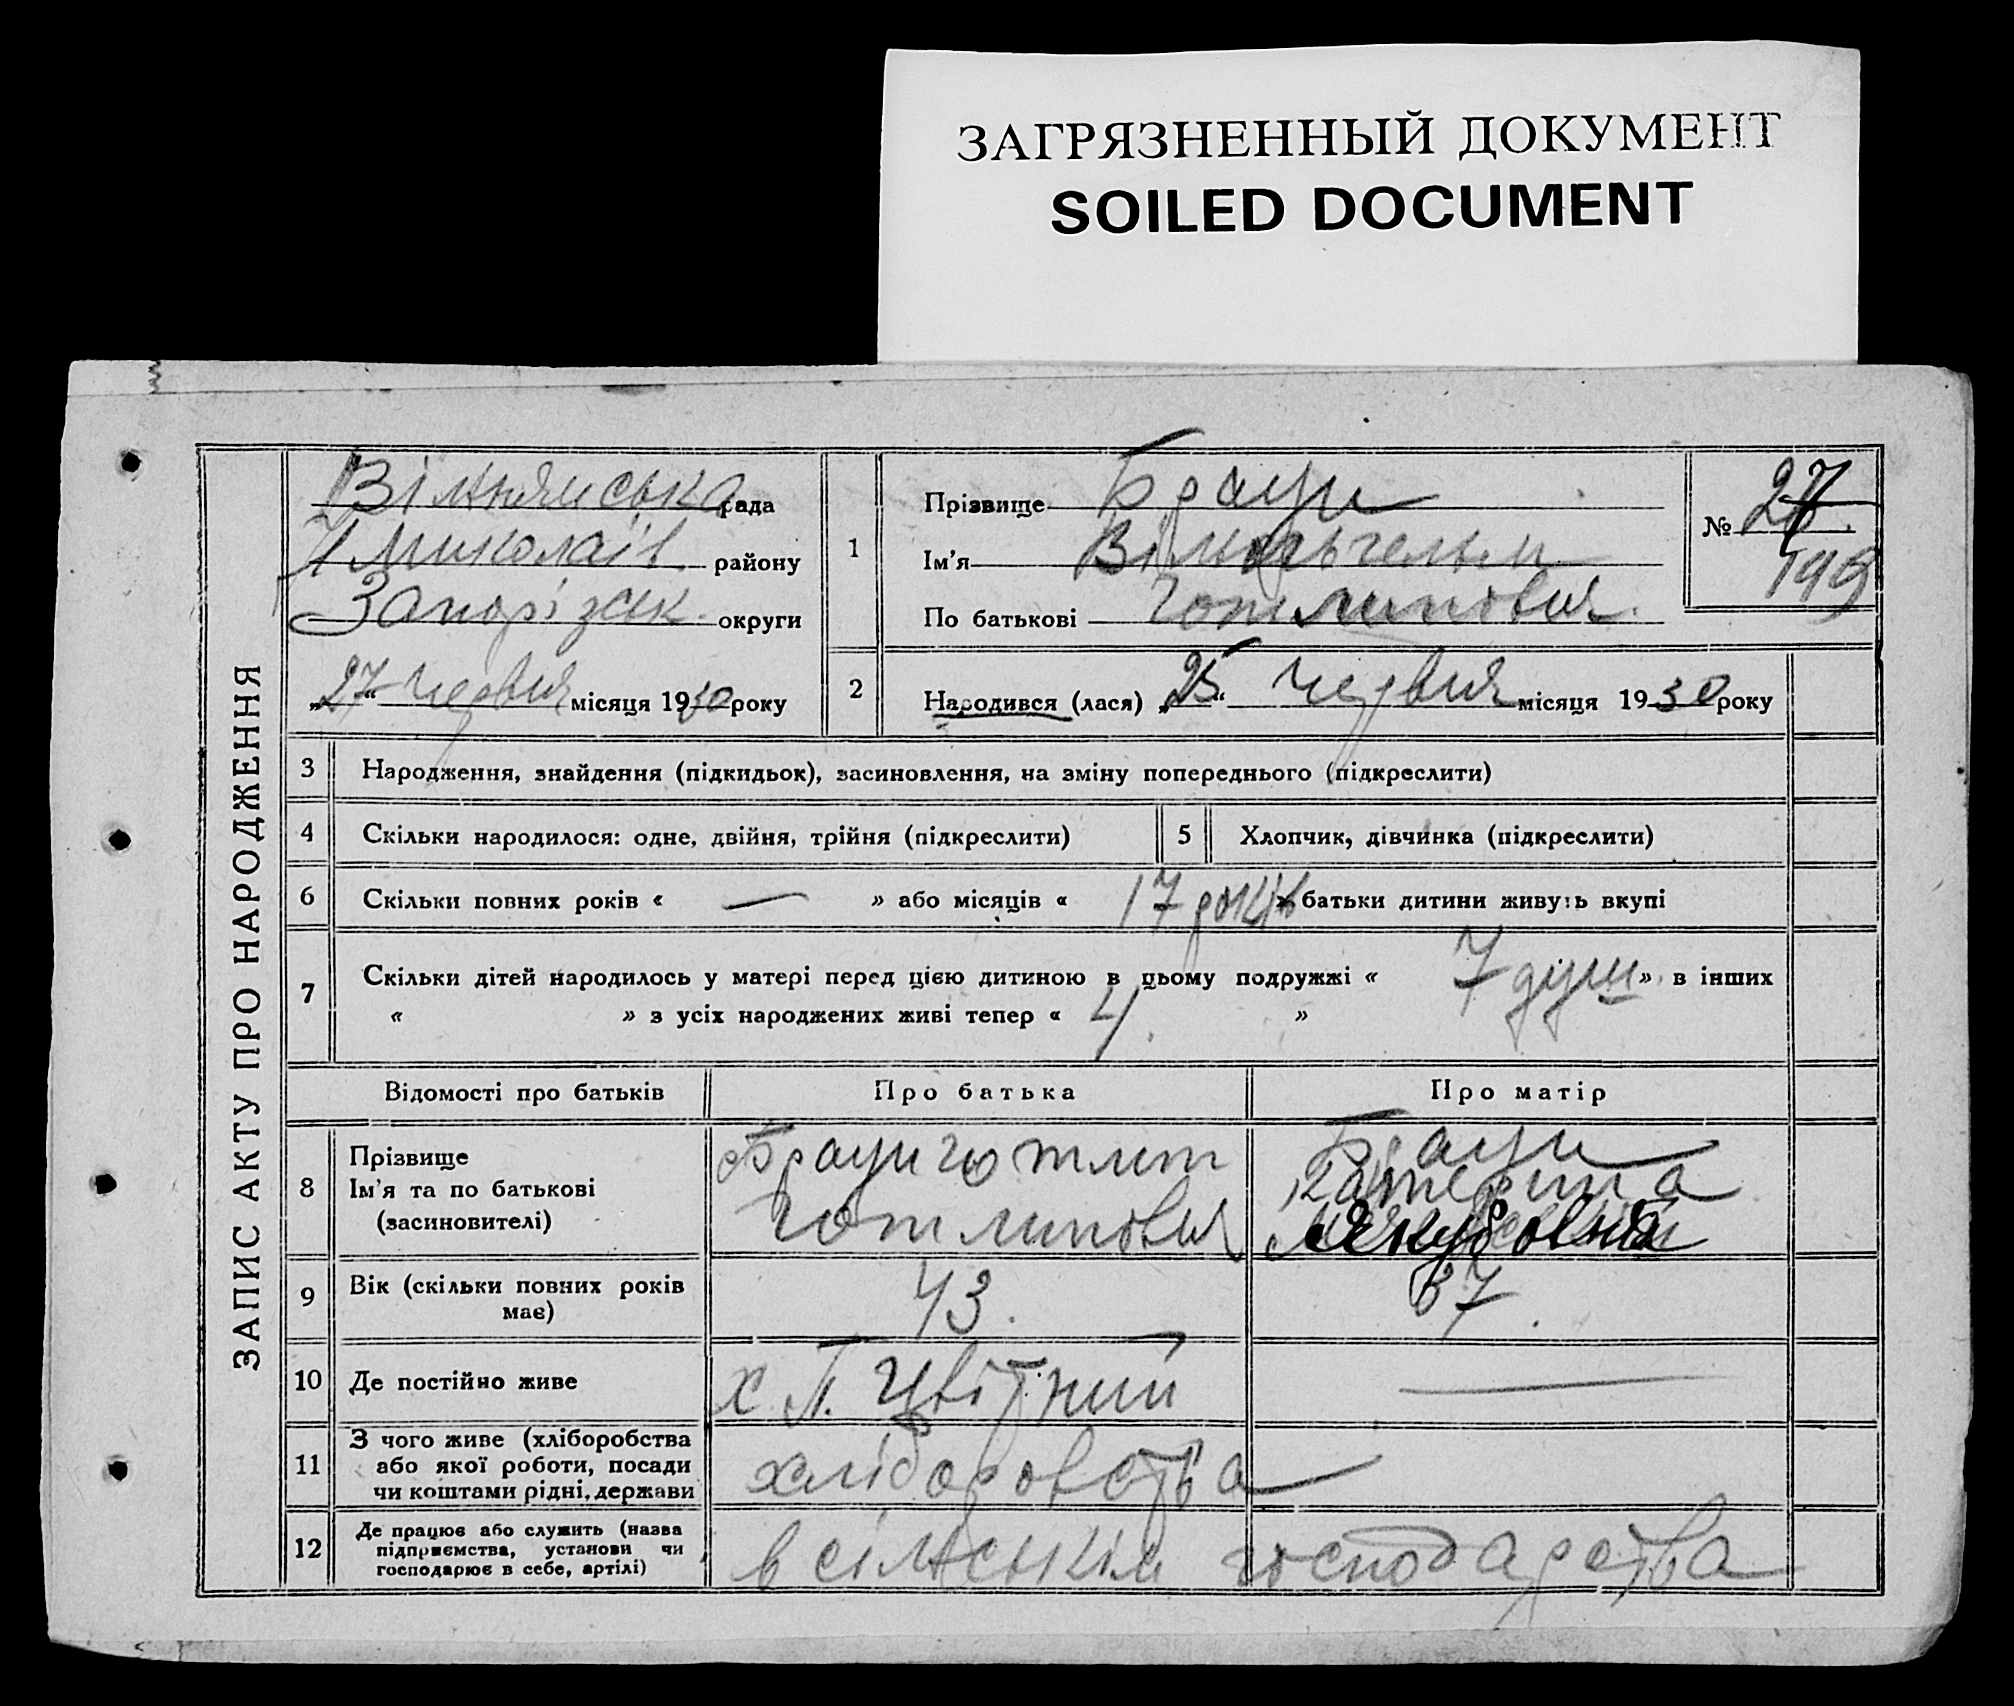 ЗАГРЯЗНЕННЫЙ ДОКУМЕНТ
SOILED DOCUMENT
ЗАПИС АКТУ ПРО НАРОДЖЕННЯ
рада
району
Запоріжж округи
„27“ червня місяця 1930 року
1
Прізвище Браун
Ім'я
По батькові Готлипович
№ 27
199
2
Народився (лася) „25“ червня місяця 1930 року
3 Народження, знайдення (підкидьок), засиновлення, на зміну попереднього (підкреслити)
4 Скільки народилося: одне, двійня, трійня (підкреслити)
5 Хлопчик, дівчинка (підкреслити)
6 Скільки повних років « — » або місяців « 17 років » батьки дитини живуть вкупі
7 Скільки дітей народилось у матері перед цією дитиною в цьому подружжі « 7 душ » в інших
« » з усіх народжених живі тепер « 4. »
Відомості про батьків
Про батька
Про матір
8
Прізвище
Ім'я та по батькові
(засновителі)
Браун Готлип
Готлипович
Браун
Катерина
Якубовна
9 Вік (скільки повних років
має)
43.
37.
10 Де постійно живе
х. П. Цвітний
—
11
З чого живе (хліборобства
або якої роботи, посади
чи коштами рідні, держави
хліборовства
12
Де працює або служить (назва
підприємства, установи чи
господарює в себе, артілі)
в сільським господарства